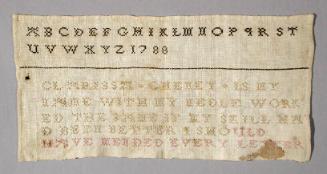 ABCDEFGHIKLMNOPQRST
UVWXYZ1788
CLARISSA CHENEY IS MY
NAME WITH MY NEDLE WORK
ED THE SAME IF MY SKILL HA
D BEEN BETTER I SHOULD
HAVE MENDED EVERY LETTER